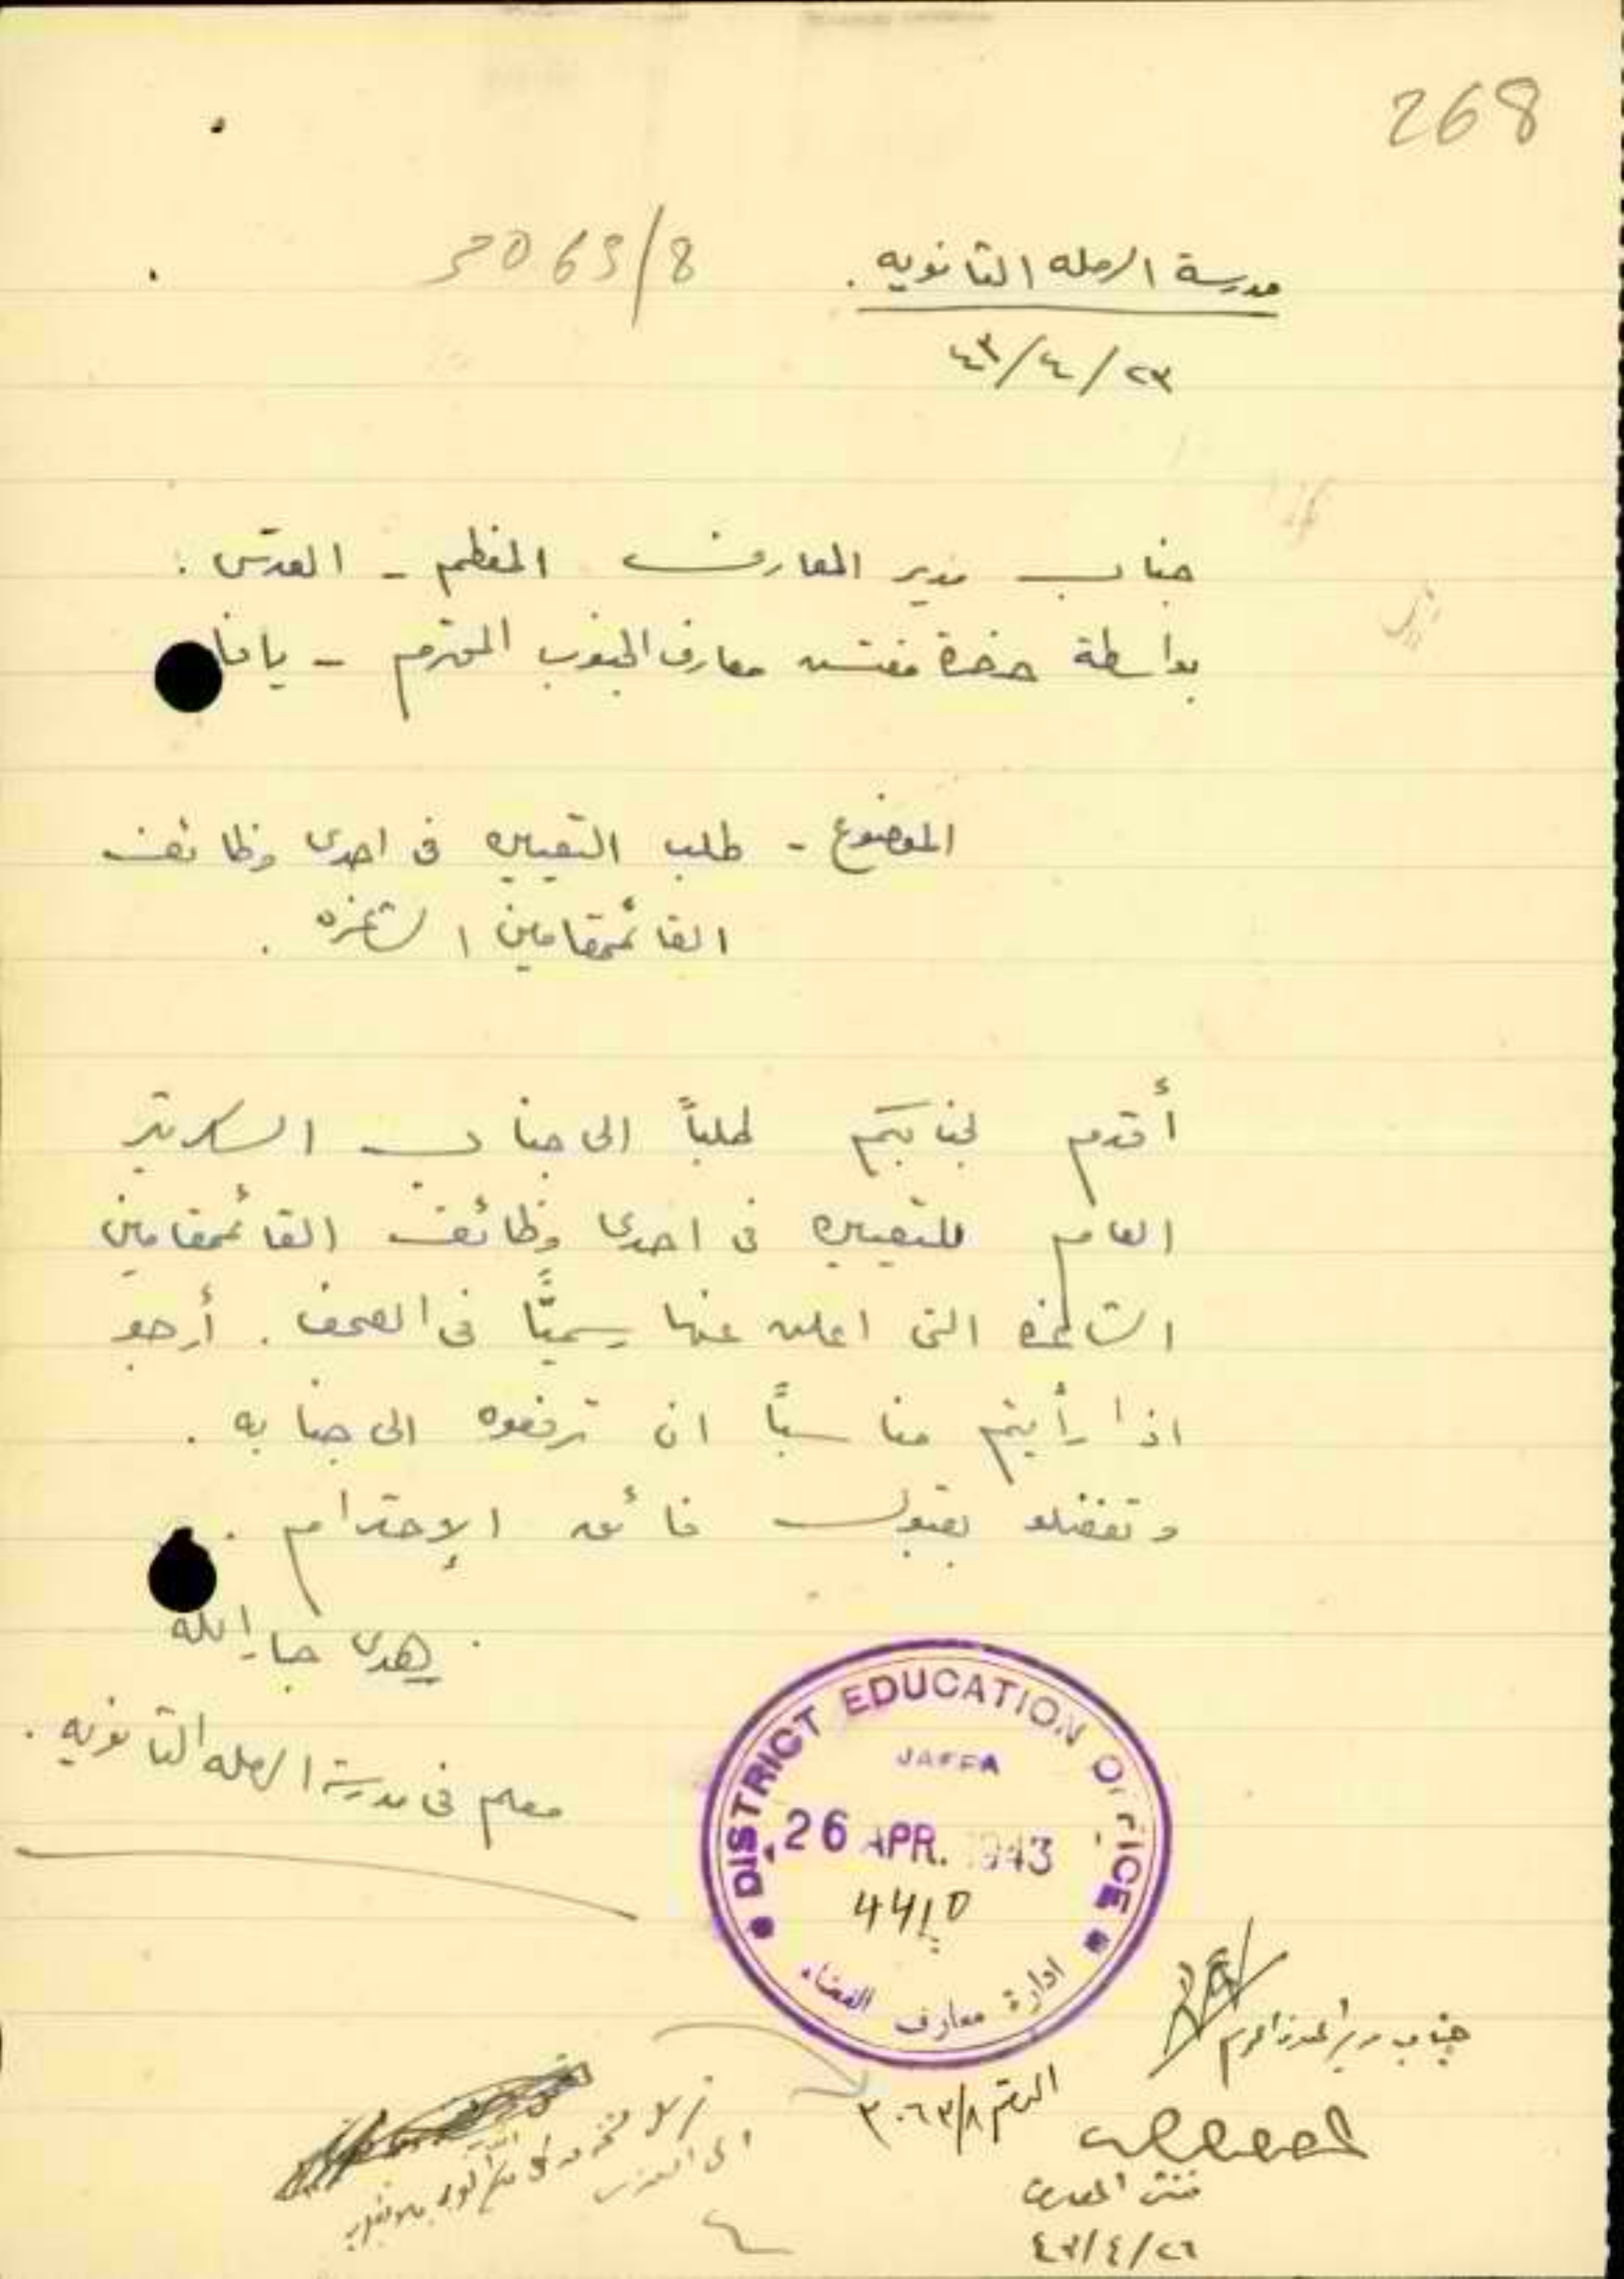 268
مدرسة الرمله الثانويه .
3063/8
٤٣/٤/٢٣
جناب مدير المعارف المعظم - القدس :
بواسطة حضرة مفتش معارف الجنوب المحترم - يافا
الموضوع - طلب التعيين في احدى وظائف
القائمقامين الشاغره .
أقدم لجنابكم طلباً الى جناب السكرتير
العام للتعيين في احدى وظائف القائمقامين
الشاغرة التي اعلن عنها رسميًّا في الصحف . أرجو
اذا رأيتم مناسبًا ان ترفعوه الى جنابه .
وتفضلو بقبول فائق الإحترام .
هدى جارالله
معلم في مدرسة الرمله الثانويه .
DISTRICT EDUCATION OFFICE
JAFFA
26 APR. 1943
4410
ادارة معارف القضاء
جناب مدير المعارف المحترم
الرقم ٣٠٦٣/٨
مفتش المعارف
٤٣/٤/٢٦